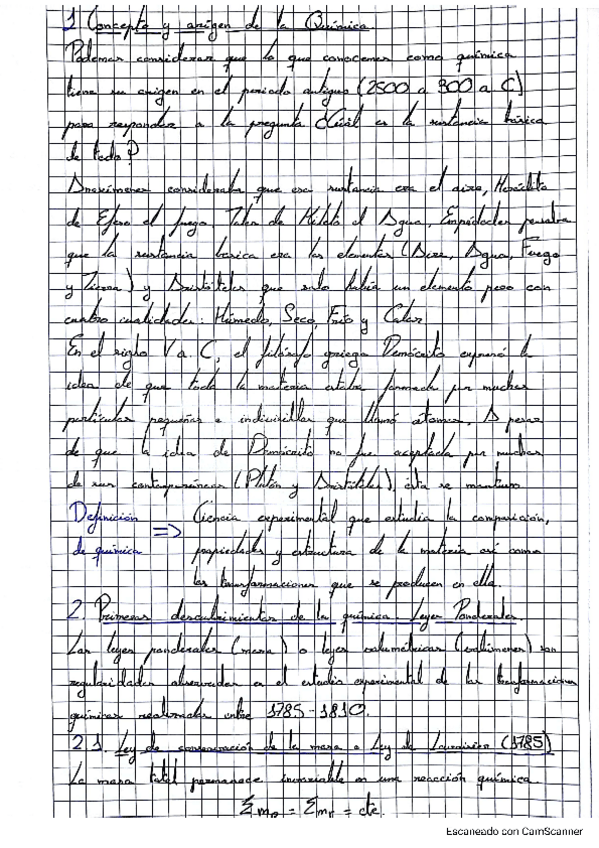 1 Concepto y origen de la Química
Podemos considerar que lo que conocemos como química
tiene su origen en el periodo antiguo (2500 a 300 a C)
para responder a la pregunta ¿Cuál es la sustancia básica
de todo?
Anaxímenes consideraba que esa sustancia era el aire, Heráclito
de Éfeso el fuego, Tales de Mileto el Agua, Empédocles pensaba
que la sustancia básica eran los elementos (Aire, Agua, Fuego
y Tierra) y Aristóteles que solo había un elemento pero con
cuatro cualidades: Húmedo, Seco, Frío y Calor
En el siglo V a. C, el filósofo griego Demócrito expresó la
idea de que toda la materia estaba formada por muchas
partículas pequeñas e indivisibles que llamó átomos. A pesar
de que la idea de Demócrito no fue aceptada por muchos
de sus contemporáneos (Platón y Aristóteles), ésta se mantuvo
Definición => Ciencia experimental que estudia la composición,
de química propiedades y estructura de la materia así como
las transformaciones que se producen en ella.
2. Primeros descubrimientos de la química Leyes Ponderales.
Las leyes ponderales (masa) o leyes volumétricas (volúmenes) son
regularidades observadas en el estudio experimental de las transformaciones
químicas realizadas entre 1785-1810.
2.1. Ley de conservación de la masa o Ley de Lavoisier (1785)
La masa total permanece invariable en una reacción química.
Σm = Σm = cte.
Escaneado con CamScanner